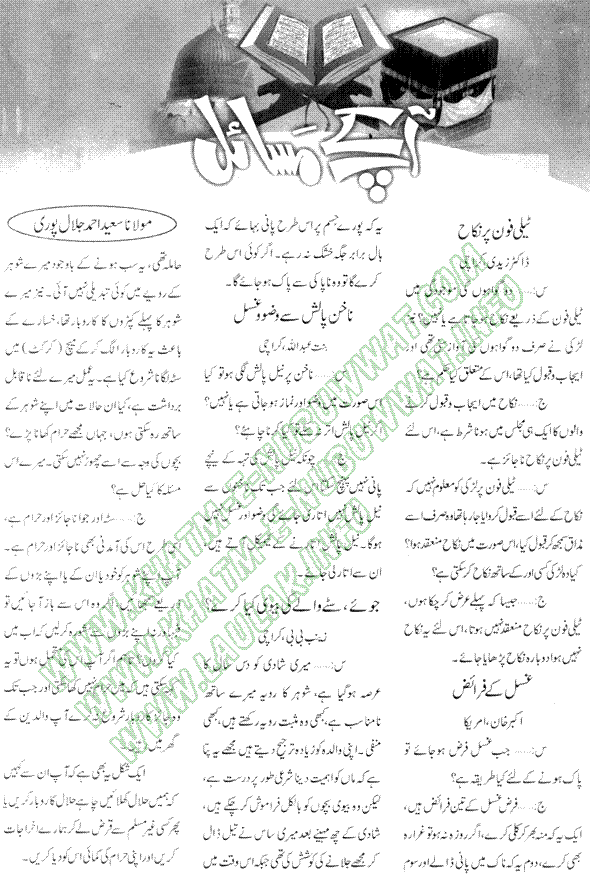 آپ کے مسائل
مولانا سعید احمد جلال پوری
ٹیلی فون پر نکاح
ڈاکٹر زیدی، کراچی
س:...... دو گواہوں کی موجودگی میں
ٹیلی فون کے ذریعے نکاح ہوجاتا ہے یا نہیں؟ نیز
لڑکی نے صرف دو گواہوں کی آواز سنی تھی اور
ایجاب وقبول کیا تھا، اس کے متعلق کیا حکم ہے؟
ج:...... نکاح میں ایجاب وقبول کرنے
والوں کا ایک ہی مجلس میں ہونا شرط ہے، اس لئے
ٹیلی فون پر نکاح ناجائز ہے۔
س:...... ٹیلی فون پر لڑکی کو معلوم نہیں کہ
نکاح کے لئے اسے قبول کروایا جارہا تھا وہ صرف اسے
مذاق سمجھ کر قبول کیا، اس صورت میں نکاح منعقد ہوا؟
کیا وہ لڑکی کسی اور کے ساتھ نکاح کرسکتی ہے؟
ج:...... جیسا کہ پہلے عرض کرچکا ہوں،
ٹیلی فون پر نکاح منعقد نہیں ہوتا، اس لئے یہ نکاح
نہیں ہوا دوبارہ نکاح پڑھایا جائے۔
غسل کے فرائض
اکبر خان، امریکا
س:...... جب غسل فرض ہوجائے تو
پاک ہونے کے لئے کیا طریقہ ہے؟
ج:...... فرض غسل کے تین فرائض ہیں،
ایک یہ کہ منہ بھر کر کلی کرے، اگر روزہ نہ ہو تو غرارہ
بھی کرے، دوم یہ کہ ناک میں پانی ڈالے اور سوم
یہ کہ پورے جسم پر اس طرح پانی بہائے کہ ایک
بال برابر جگہ خشک نہ رہے۔ اگر کوئی اس طرح
کرے گا تو وہ ناپاکی سے پاک ہوجائے گا۔
ناخن پالش سے وضو وغسل
بنت عبداللہ، کراچی
س:...... ناخن پر نیل پالش لگی ہو تو کیا
اس صورت میں وضو اور نماز ہوجاتی ہے یا نہیں؟
اگر نیل پالش اتر نہ سکے تو کیا کرنا چاہئے؟
ج:...... چونکہ نیل پالش کی تہہ کے نیچے
پانی نہیں پہنچ سکتا اس لئے جب تک ناخنوں سے
نیل پالش نہیں اتاری جائے گی وضو اور غسل نہیں
ہوگا۔ نیل پالش اتارنے کے کیمیکل آتے ہیں
ان سے اتارلی جائے۔
جوئے، سٹے والے کی بیوی کیا کرے؟
زینب بی بی، کراچی
س:...... میری شادی کو دس سال کا
عرصہ ہوگیا ہے، شوہر کا رویہ میرے ساتھ
نامناسب ہے، کبھی وہ مثبت رویہ رکھتے ہیں، کبھی
منفی۔ اپنی والدہ کو زیادہ ترجیح دیتے ہیں مجھے یہ پتا
ہے کہ ماں کو اہمیت دینا شرعی طور پر درست ہے،
لیکن وہ بیوی بچوں کو بالکل فراموش کرچکے ہیں،
شادی کے چھ مہینے بعد میری ساس نے تیل ڈال
کر مجھے جلانے کی کوشش کی تھی جبکہ اس وقت میں
حاملہ تھی، یہ سب ہونے کے باوجود میرے شوہر
کے رویے میں کوئی تبدیلی نہیں آئی۔ نیز میرے
شوہر کا پہلے کپڑوں کا کاروبار تھا، خسارے کے
باعث یہ کاروبار الگ کرکے میچ (کرکٹ) میں
سٹہ لگانا شروع کیا ہے۔ یہ عمل میرے لئے ناقابل
برداشت ہے، کیا ان حالات میں اپنے شوہر کے
ساتھ رہ سکتی ہوں، جہاں مجھے حرام کھانا پڑے؟
بچوں کی وجہ سے اسے چھوڑ نہیں سکتی۔ میرے اس
مسئلہ کا کیا حل ہے؟
ج:...... سٹہ اور جوا ناجائز اور حرام ہے،
اسی طرح اس کی آمدنی بھی ناجائز اور حرام ہے۔
آپ اپنے شوہر کو خود یا ان کے یا اپنے بڑوں کے
ذریعے سمجھائیں، اگر وہ اس سے باز آجائیں تو
فبہا ورنہ اپنے بڑوں سے مشورہ کرلیں کہ اب میں
کیا کروں؟ تاہم اگر آپ اس کی متحمل ہوں تو یہ
کہہ سکتی ہیں کہ میں حرام نہیں کھا سکتی اور جب تک
وہ جائز کاروبار شروع نہ کرے آپ والدین کے
گھر میں رہیں۔
ایک شکل یہ بھی ہے کہ آپ ان سے کہیں
کہ ہمیں حلال کھلائیں چاہے حلال کاروبار کریں یا
پھر کسی غیر مسلم سے قرض لے کر ہمارے اخراجات
کریں اور اپنی حرام کی کمائی اس کو دیا کریں۔
WWW.KHATM-E-NUBUWWAT.COM
WWW.KHATM-E-NUBUWWAT.INFO
WWW.LAULAK.INFO